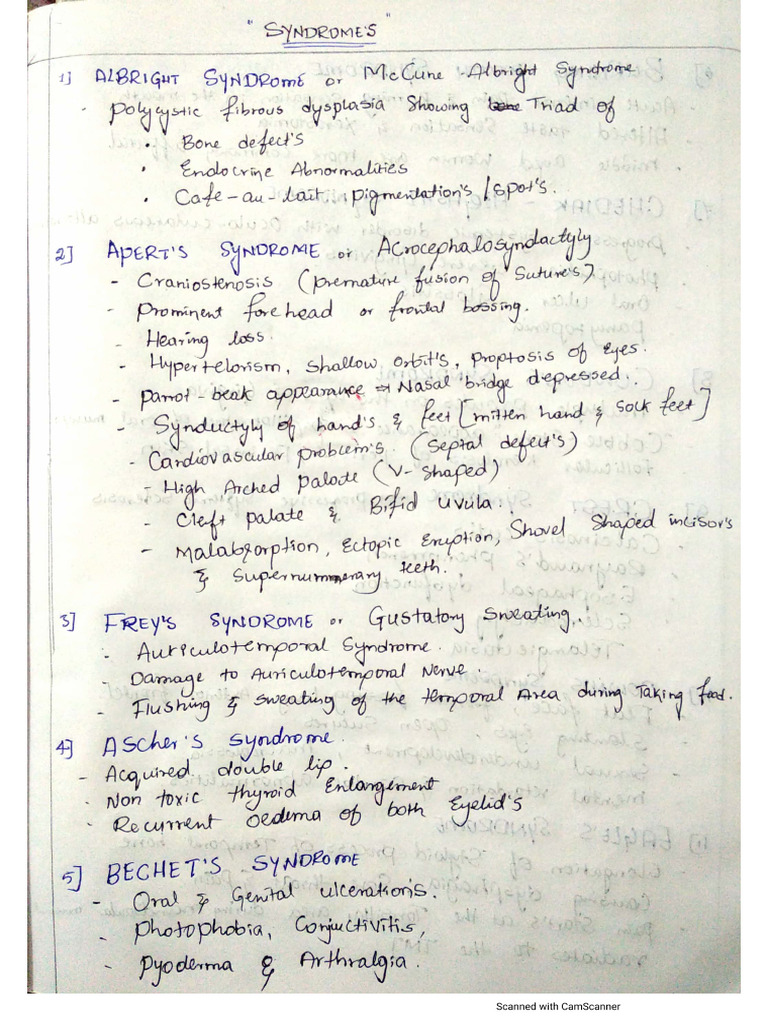 "SYNDROME'S"
1] ALBRIGHT SYNDROME or McCune-Albright Syndrome
- polycystic fibrous dysplasia Showing Triad of
• Bone defect's
• Endocrine Abnormalities
• Cafe-au-lait pigmentation's / spot's.
2] APERT'S SYNDROME or Acrocephalosyndactyly
- Craniostenosis (premative fusion of Suture's)
- Prominent forehead or frontal bossing.
- Hearing loss.
- Hypertelorism, shallow orbit's, proptosis of Eyes.
- parrot-beak appearance ⇒ Nasal bridge depressed.
- Synductyly of hand's & feet [mitten hand & sock feet]
- Cardiovascular problem's. (septal defect's)
- High Arched Palate (V-shaped)
- Cleft palate & Bifid uvula.
- Malabsorption, Ectopic Eruption, Shovel Shaped incisor's
& supernumerary teeth.
3] FREY'S SYNDROME or Gustatory sweating.
- Auriculotemporal Syndrome.
- Damage to Auriculotemporal Nerve.
- Flushing & sweating of the temporal Area during Taking food.
4] Ascher's syndrome.
- Acquired double lip.
- Non toxic thyroid Enlargement
- Recurrent oedema of both Eyelid's
5] BECHET'S SYNDROME
- Oral & Genital ulceration's.
- Photophobia, Conjuctivitis,
- Pyoderma & Arthralgia.
Scanned with CamScanner